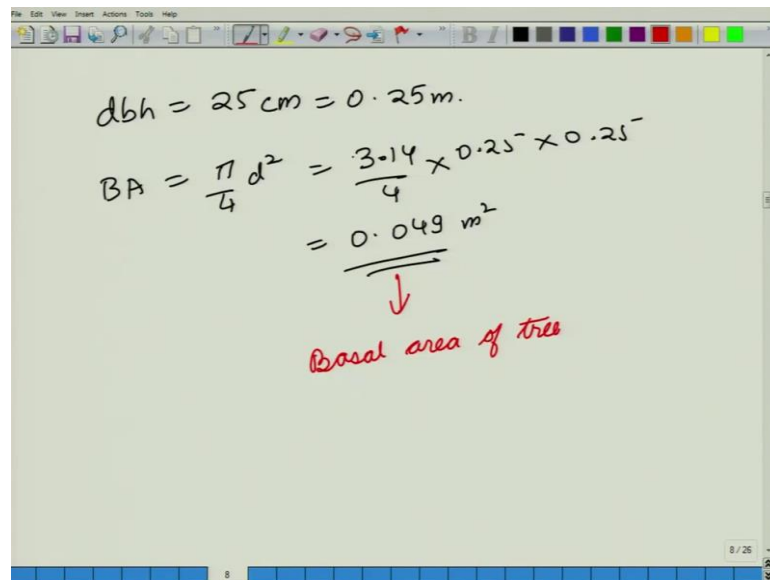 File Edit View Insert Actions Tools Help
B I
dbh = 25 cm = 0.25 m.
BA = π/4 d² = 3.14/4 × 0.25 × 0.25
= 0.049 m²
↓
Basal area of tree
8 / 26
8